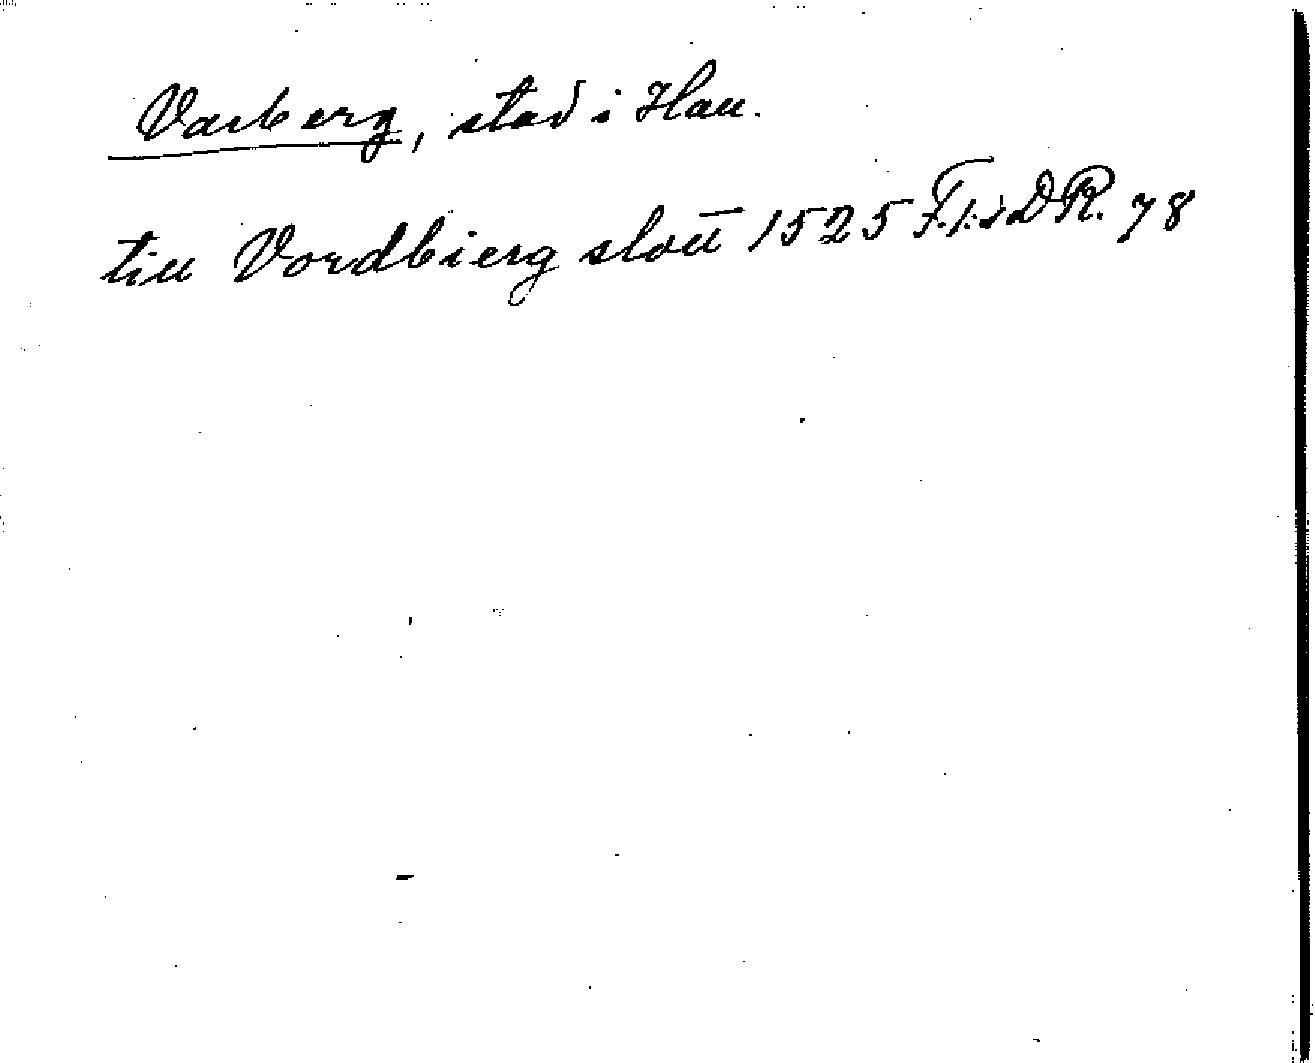 Varberg, stad i Hall.
till Vordbierg slott 1525 F.I:s DR. 78